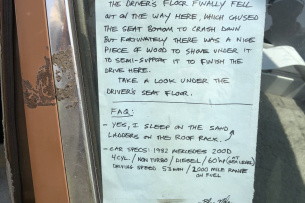 THE DRIVER'S FLOOR FINALLY FELL
OUT ON THE WAY HERE, WHICH CAUSED
THE SEAT BOTTOM TO CRASH DOWN
BUT FORTUNATELY THERE WAS A NICE
PIECE OF WOOD TO SHOVE UNDER IT
TO SEMI-SUPPORT IT TO FINISH THE
DRIVE HERE.
TAKE A LOOK UNDER THE
DRIVER'S SEAT FLOOR.
FAQ:
- YES, I SLEEP ON THE SAND
LADDERS ON THE ROOF RACK.
- CAR SPECS: 1982 MERCEDES 200D
4CYL. / NON TURBO / DIESEL / 60hp (AT SEA LEVEL)
DRIVING SPEED 52MPH / 1000 MILE RANGE
ON FUEL